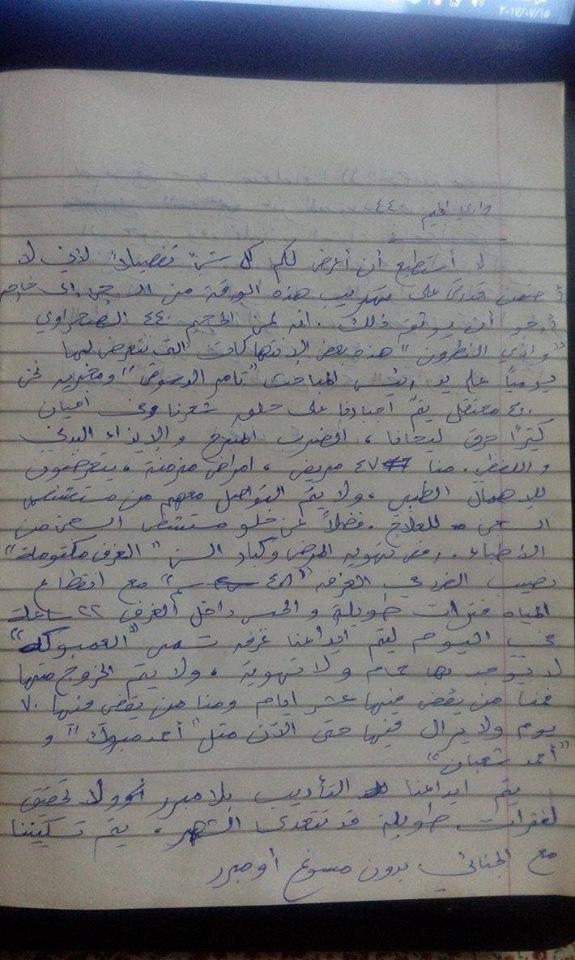 ٢٠١٧/٠٧/١٥
وادي الجحيم ٤٤٠
لا أستطيع أن أعرض لكم كل شئ تفصيلاً لأنني لا
قدرتي على تهريب هذه الورقة من السجن إلى خارجه
أرجو أن يوفق ذلك. انه لمن الجحيم ٤٤٠ الصحراوي
"وادي النطرون" هذه بعض الانتهاكات التي نتعرض لها
يومياً على يد رئيس المباحث "تامر الدسوقي" ومخبريه نحن
٤٠ معتقل يتم اجبارنا على حلق شعرنا وفي أحيان
كثيرًا حرق لحانا، الضرب المبرح والإيذاء البدني
واللفظي. منا ٤٧ مريض، أمراض مزمنة، يتعرضون
للإهمال الطبي، ولا يتم التواصل معهم من مستشفى
السجن للعلاج. فضلاً عن خلو مستشفى السجن من
الأطباء. رفض تهوية المرضى وكبار السن "الغرف مكتومة"
نصيب الفرد في الغرفة مع انقطاع
المياه فترات طويلة والحبس داخل الغرف ٢٢ ساعة
في اليوم ليتم ايداعنا غرفه تسمى "العمبوكة"
لا يوجد بها حمام ولا تهوية، ولا يتم الخروج منها
فمنا من يقضي فيها عشر ايام ومنا من يقضي فيها ٧٠
يوم ولا يزال فيها حتى الآن مثل "أحمد مبروك" و
"أحمد شعبان"
يتم ايداعنا التأديب بلا مبرر ولا تحقيق
لفترات طويلة قد تتعدى الشهر، يتم تسكيننا
مع الجنائي بدون مسوغ أو مبرر